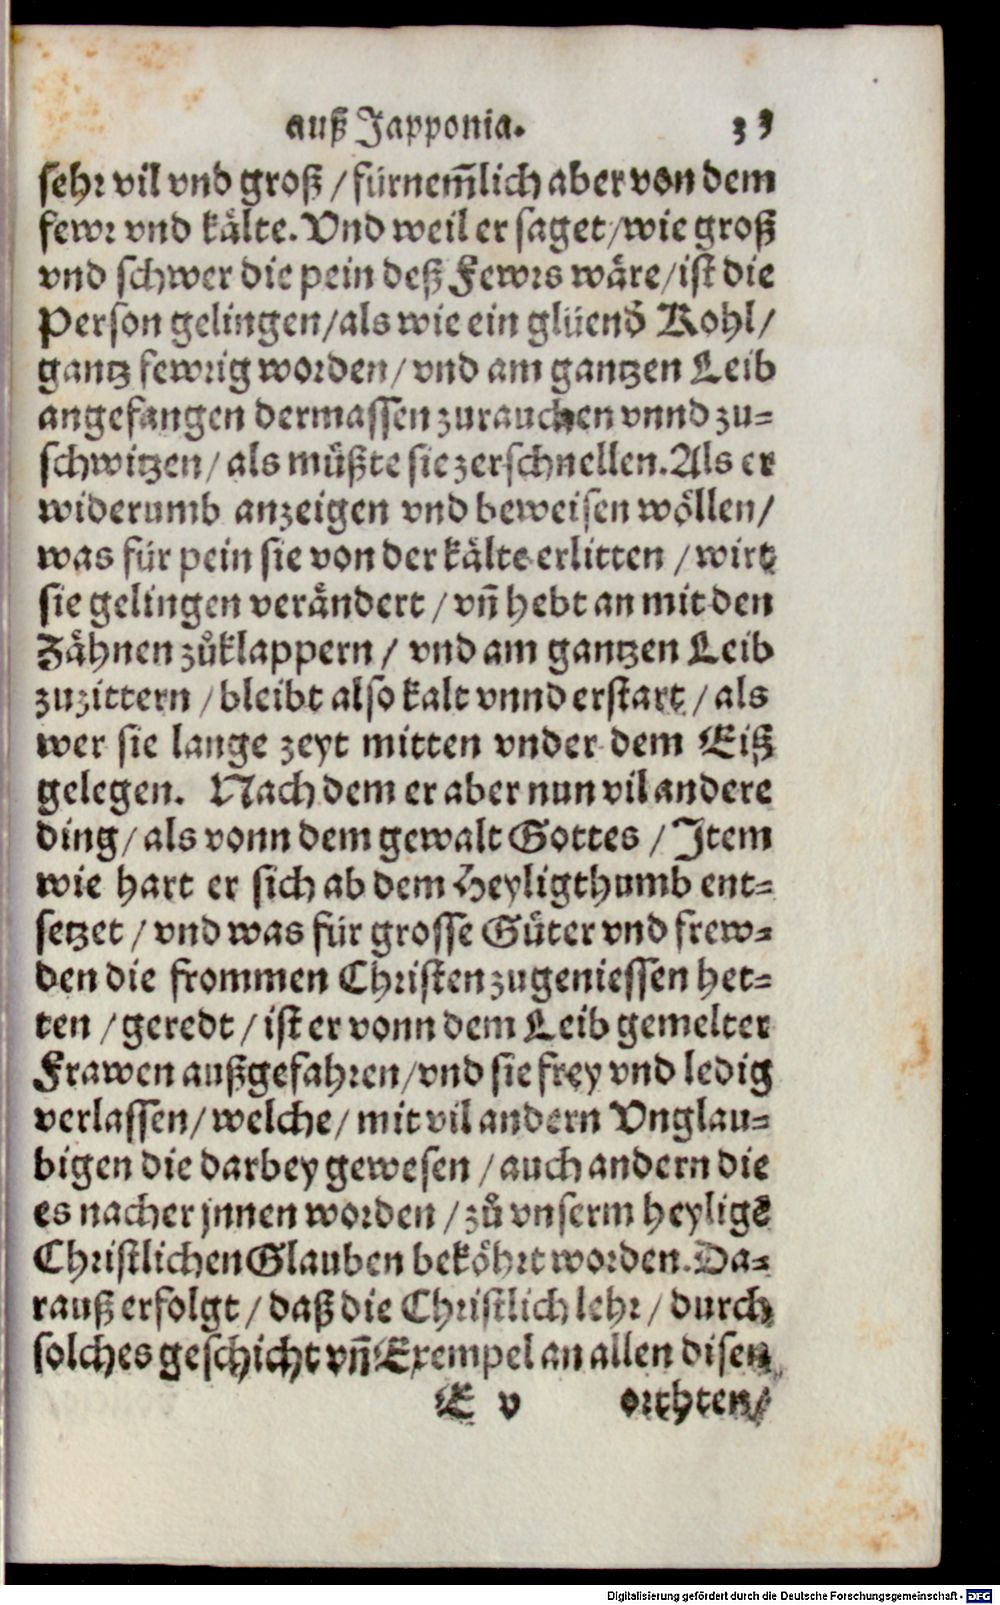 auß Japponia. 33
sehr vil vnd groß / fürnem̃lich aber von dem
fewr vnd kälte. Vnd weil er saget / wie groß
vnd schwer die pein deß Fewrs wäre / ist die
Person gelingen / als wie ein glüend Kohl /
gantz fewrig worden / vnd am gantzen Leib
angefangen dermassen zurauchen vnnd zu=
schwitzen / als müßte sie zerschnellen. Als er
widerumb anzeigen vnd beweisen wöllen /
was für pein sie von der kälte erlitten / wirt
sie gelingen verändert / vñ hebt an mit den
Zähnen zůklappern / vnd am gantzen Leib
zuzittern / bleibt also kalt vnnd erstart / als
wer sie lange zeyt mitten vnder dem Eiß
gelegen. Nach dem er aber nun vil andere
ding / als vonn dem gewalt Gottes / Item
wie hart er sich ab dem Heyligthumb ent=
setzet / vnd was für grosse Güter vnd frew=
den die frommen Christen zugeniessen het=
ten / geredt / ist er vonn dem Leib gemelter
Frawen außgefahren / vnd sie frey vnd ledig
verlassen / welche / mit vil andern Vnglau=
bigen die darbey gewesen / auch andern die
es nacher jnnen worden / zů vnserm heyligẽ
Christlichen Glauben beköhrt worden. Da=
rauß erfolgt / daß die Christlich lehr / durch
solches geschicht vñ Exempel an allen disen
E v orthten /
Digitalisierung gefördert durch die Deutsche Forschungsgemeinschaft - DFG